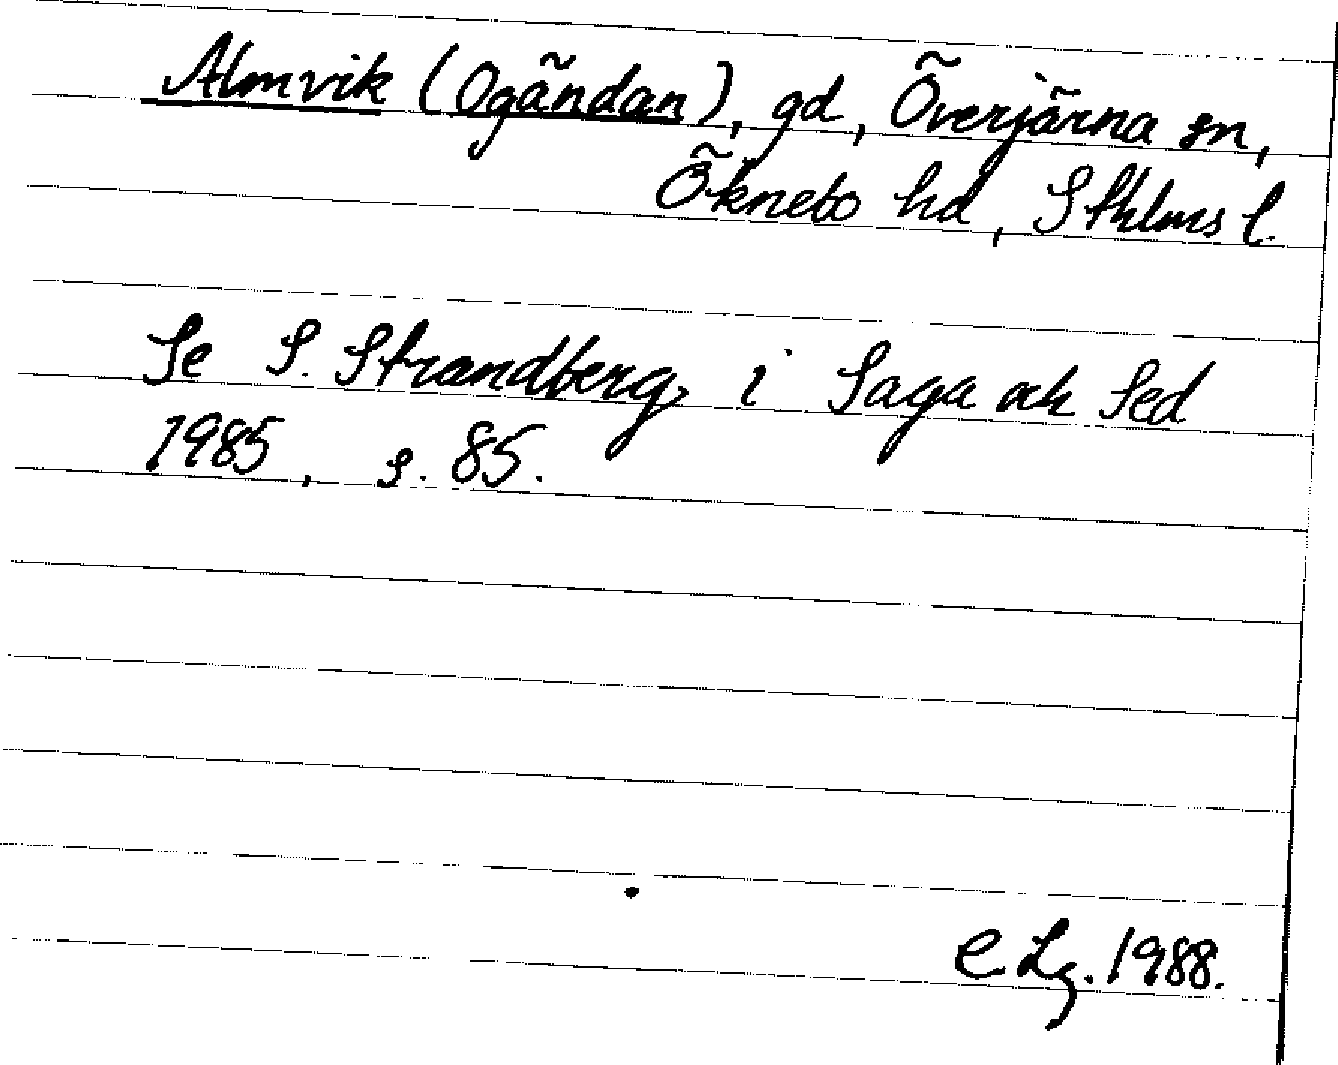 Almvik (Ogändan), gd, Överjärna sn,
Öknebo hd, Sthlms l.
Se S. Strandberg i Saga och Sed
1985, s. 85.
C. Lg. 1988.